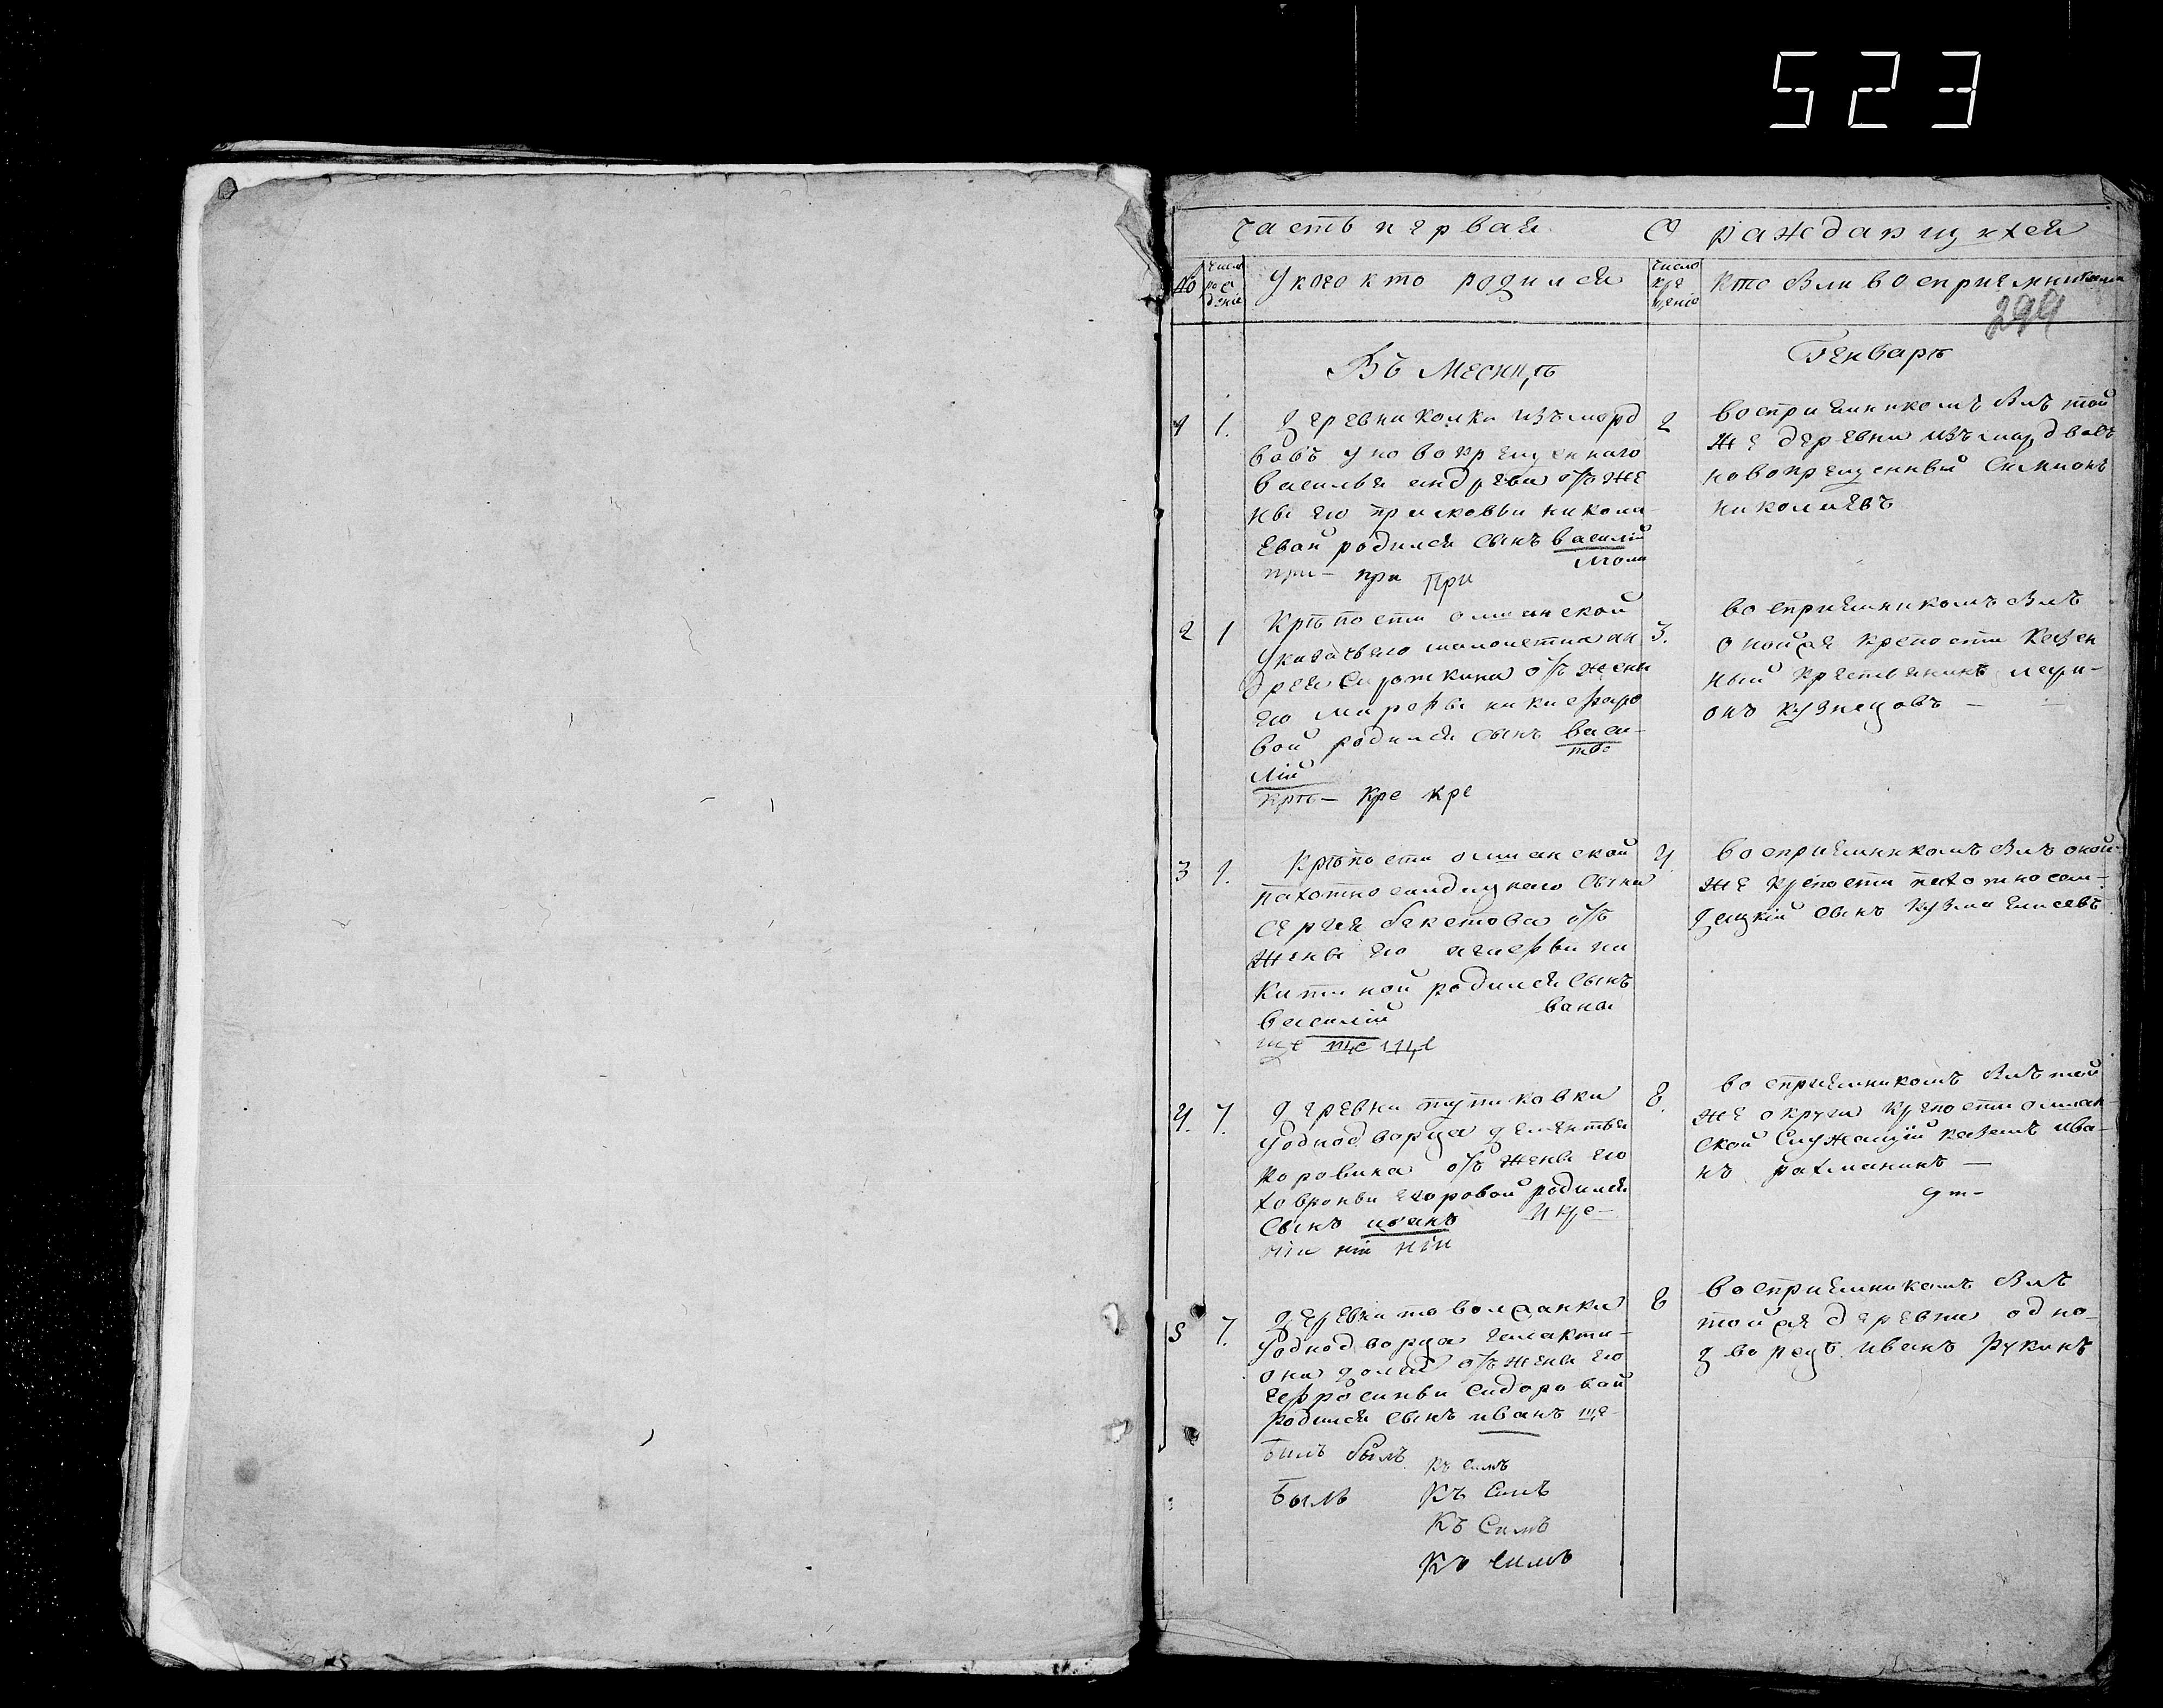 523
Часть первая О раждающихся
№
число рождения
У кого кто родился
число крещения
Кто были восприемниками
299
Въ Месицъ Генварь
1 1. Деревни Колки изъ морд
вовъ у новокрещеннаго
Василья Андреева отъ же
ны его Прасковьи Никола
евой родился сынъ Василій
при- при При
2
воспріемникомъ былъ той
же деревни изъ мордвовъ
новокрещенный Симионъ
Николаевъ
2 1 Крѣпости Олшанской
Сироткина отъ жены
его Марфы Никифоро
вой родился сынъ Васи-
лій
тво
крѣ- кре кре
3.
воспріемникомъ былъ
оной же крепости казен
ный крестьянинъ
онъ Кузнецовъ -
3 1. Крѣпости Олшанской
пахотно салдацкаго сына
Сергея Бекетова отъ
жены его Агафьи Ни
китиной родился сынъ
Василій
вана
ще ще ще
4
воспріемникомъ былъ оной
же крепости пахотно сал-
дацкій сынъ Кузма Елисевъ
4. 7. Деревни Тупиковки
у однодворца Дементья
Коровина отъ жены его
Ховроньи Егоровой родился
сынъ Иванъ
и кре-
нія ній нія
8.
воспріемникомъ былъ той
же округи крепости Олшан
ской служащій казакъ Ива-
нъ Рахманинъ —
от-
5 7. Деревни Товолжанки
у однодворца Галакти-
она отъ жены его
Ефросиньи Сидоровой
родился сынъ Иванъ ще
8
воспріемникомъ былъ
той же деревни одно-
дворецъ Иванъ Рукинъ
былъ былъ къ симъ
былъ Къ Симъ
Къ Симъ
Къ симъ